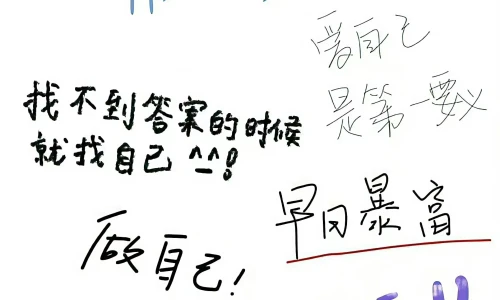 爱自己
是第一要义
找不到答案的时候
就找自己^_^!
早日暴富
做自己!